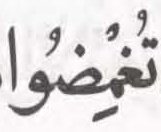 تُغْمِضُوا